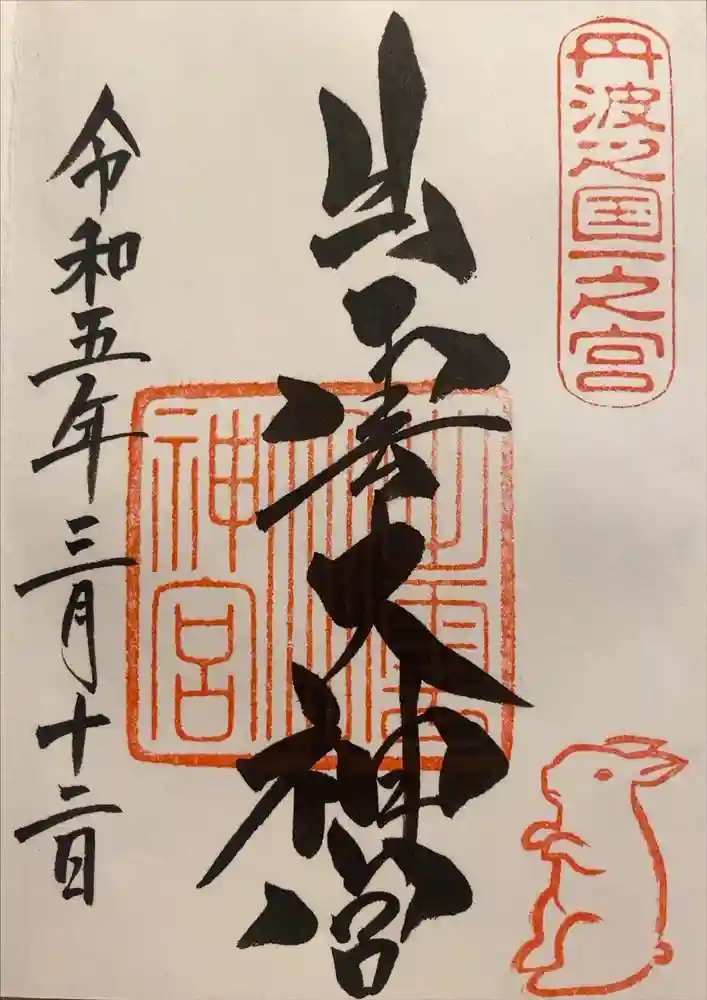 丹波之国一之宮
出雲大神宮
出雲大神宮
令和五年三月十二日